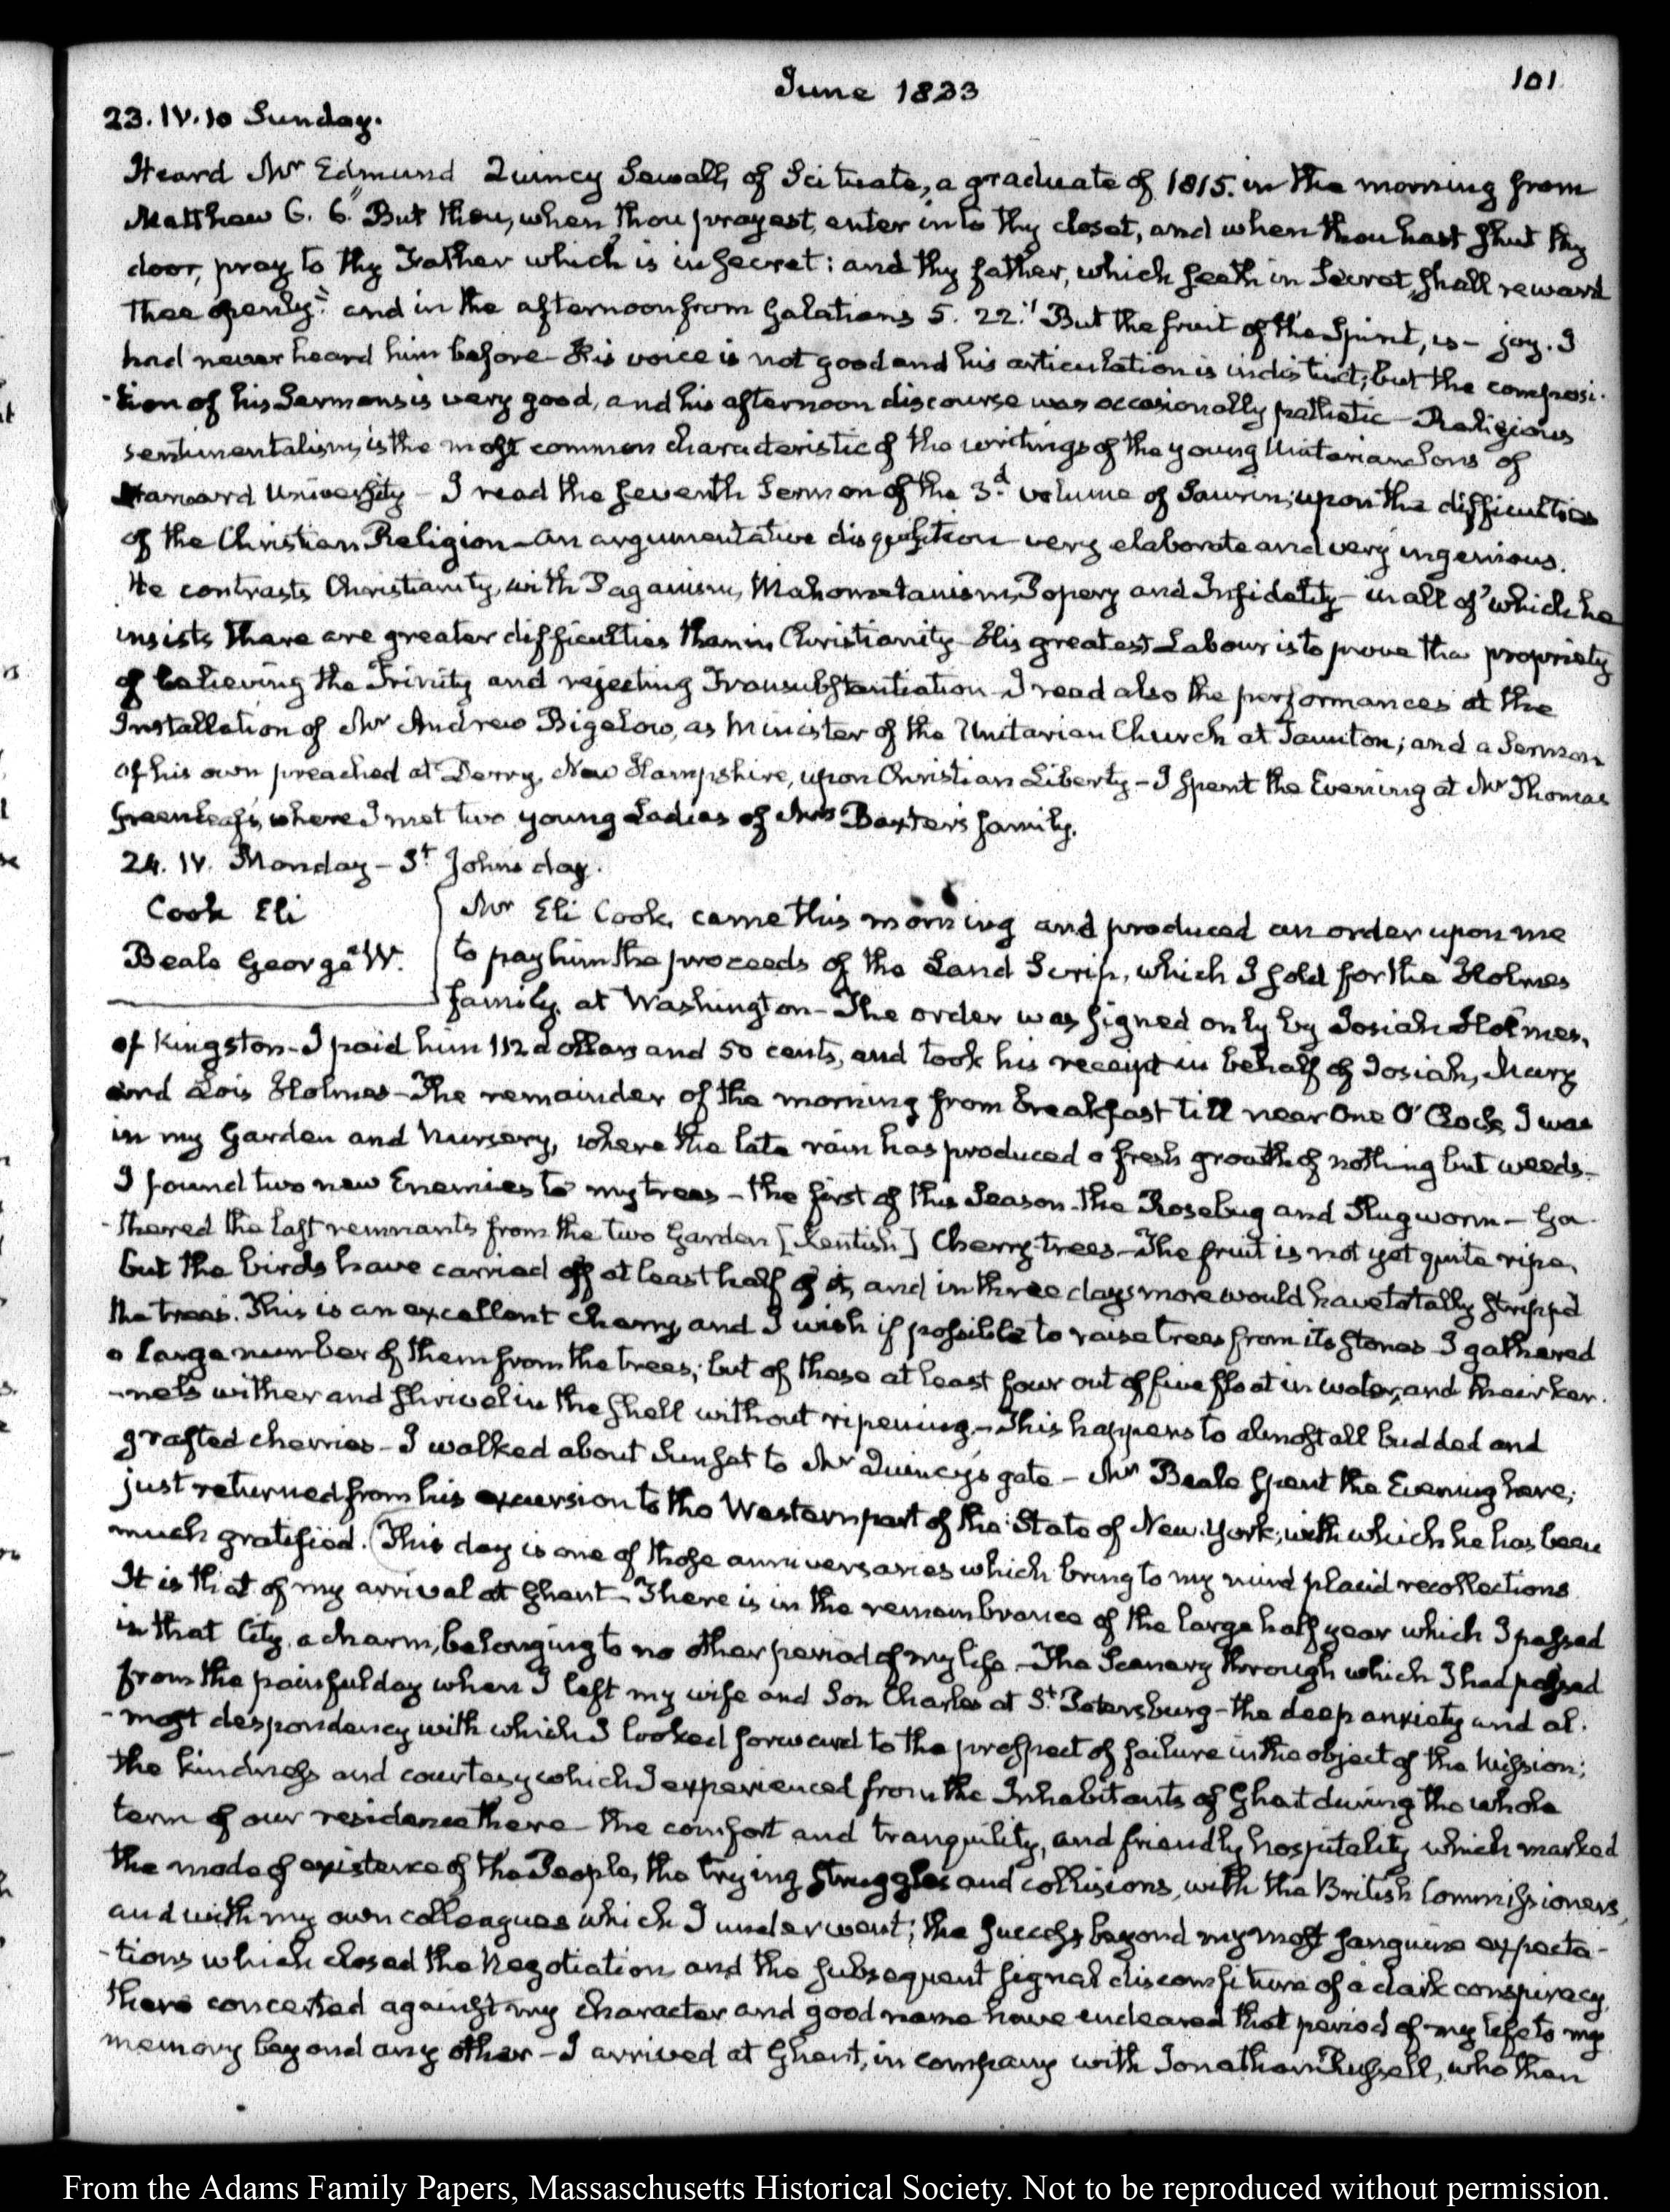 June 1833
101
23. IV. 10 Sunday.
Heard Mr Edmund Quincy Sewall, of Scituate, a graduate of 1815. in the morning from
Matthew 6. 6. "But thou, when thou prayest, enter into thy closet, and when thou hast shut thy
door, pray to thy Father which is in secret: and thy father, which seeth in Secret, shall reward
thee openly": and in the afternoon from Galatians 5. 22. "But the fruit of the Spirit, is — joy. I
had never heard him before — His voice is not good and his articulation is indistinct; but the composi-
-tion of his Sermons is very good, and his afternoon discourse was occasionally pathetic — Religious
sentimentalism, is the most common characteristic of the writings of the young Unitarian Sons of
Harvard University — I read the seventh Sermon of the 3d. volume of Saurin; upon the difficulties
of the Christian Religion — an argumentative disquisition very elaborate and very ingenious.
He contrasts Christianity, with Paganism, Mahometanism, Popery and Infidelity — in all of which he
insists there are greater difficulties than in Christianity — His greatest Labour is to prove the propriety
of believing the Trinity and rejecting Transubstantiation — I read also the performances at the
Installation of Mr Andrew Bigelow, as Minister of the Unitarian Church at Taunton; and a Sermon
of his own preached at Derry, New Hampshire, upon Christian Liberty — I spent the Evening at Mr Thomas
Greenleaf's, where I met two young Ladies of Mrs Baxter's family.
24. IV. Monday — St Johns day.
Cook Eli
Beale George W.
Mr Eli Cook, came this morning and produced an order upon me
to pay him the proceeds of the Land Scrip, which I sold for the Holmes
family, at Washington — The order was signed only by Josiah Holmes,
of Kingston — I paid him 112 dollars and 50 cents, and took his receipt in behalf of Josiah, Mary
and Lois Holmes — The remainder of the morning from breakfast till near One O'Clock, I was
in my Garden and Nursery, where the late rain has produced a fresh growth of nothing but weeds —
I found two new Enemies to my trees — the first of this Season — the Rosebug and Slugworm — Ga-
-thered the last remnants from the two Garden [Kentish] Cherry-trees — The fruit is not yet quite ripe,
but the birds have carried off at least half of it, and in three days more would have totally stripp'd
the trees. This is an excellent cherry, and I wish if possible to raise trees from its stones — I gathered
a large number of them from the trees; but of these at least four out of five float in water, and their ker-
-nels wither and shrivel in the shell without ripening — This happens to almost all budded and
grafted cherries — I walked about Sunset to Mr Quincy's gate — Mr Beale spent the Evening here;
just returned from his excursion to the Western part of the State of New-York; with which he has been
much gratified. (This day is one of those anniversaries which bring to my mind placid recollections
It is that of my arrival at Ghent — There is in the remembrance of the large half year which I passed
in that City, a charm, belonging to no other period of my life — The Scenery through which I had passed
from the painful day when I left my wife and Son Charles at St. Petersburg — the deep anxiety and al-
-most despondency with which I looked forward to the prospect of failure in the object of the Mission;
the kindness and courtesy which I experienced from the Inhabitants of Ghent during the whole
term of our residence there — the comfort and tranquility, and friendly hospitality which marked
the mode of existence of the People, the trying struggles and collisions, with the British Commissioners,
and with my own colleagues which I underwent; the success beyond my most sanguine expecta-
-tions which closed the Negotiation, and the subsequent signal discomfiture of a dark conspiracy
there concerted against my character and good name have endeared that period of my life to my
memory beyond any other — I arrived at Ghent, in company with Jonathan Russell, who then
From the Adams Family Papers, Massachusetts Historical Society. Not to be reproduced without permission.